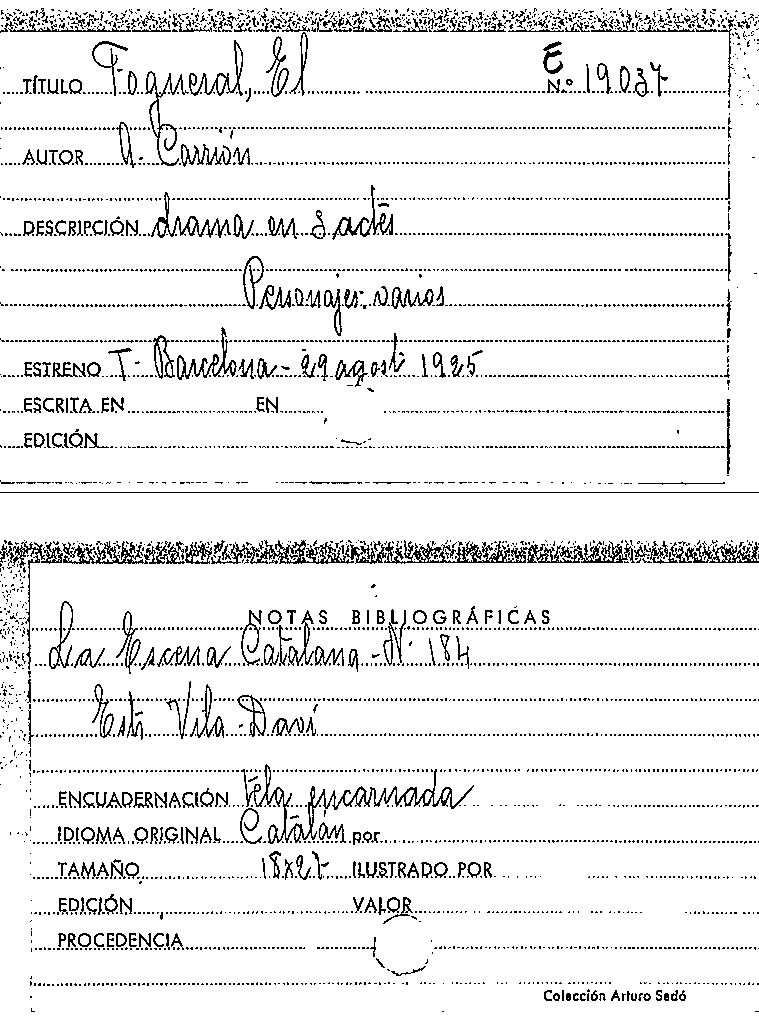 TÍTULO Fogueral, El E N.º 19037
AUTOR A. Carrión
DESCRIPCIÓN drama en 3 actes
Personajes: varios
ESTRENO T. Barcelona - 29 agost 1925
ESCRITA EN EN
EDICIÓN
NOTAS BIBLIOGRÁFICAS
La Escena Catalana - Nº 184
Estr. Vila-Daví
ENCUADERNACIÓN tela encarnada
IDIOMA ORIGINAL Catalán por
TAMAÑO 18x27 ILUSTRADO POR
EDICIÓN VALOR
PROCEDENCIA
Colección Arturo Sedó